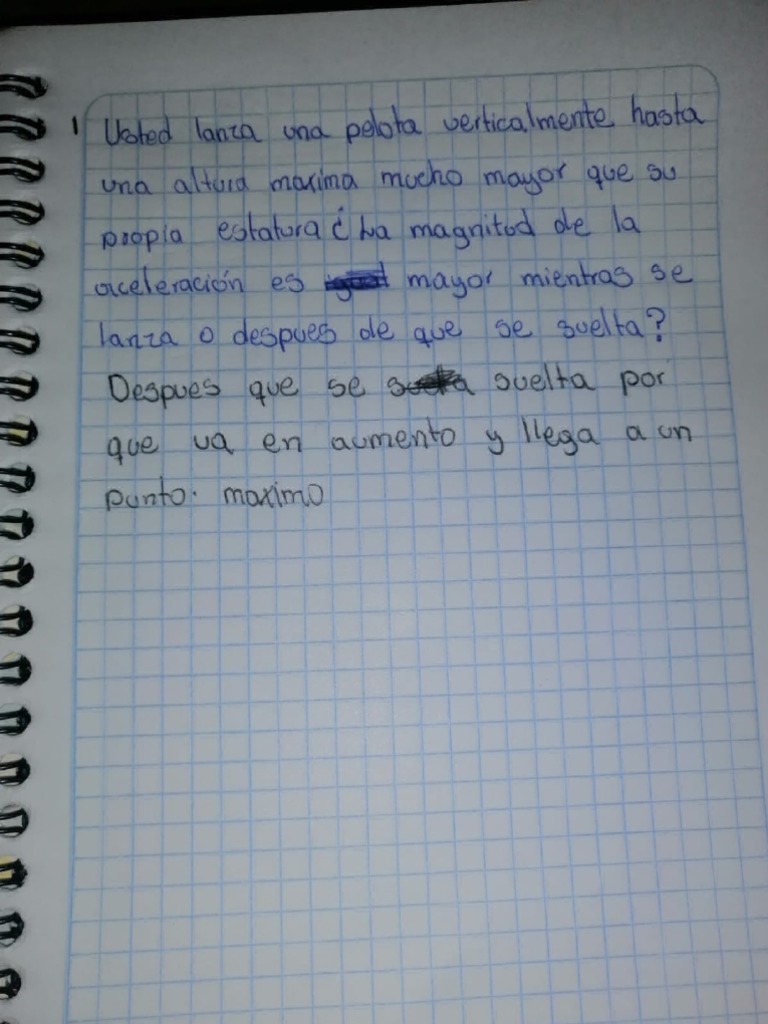 1 Usted lanza una pelota verticalmente hasta
una altura maxima mucho mayor que su
propia estatura ¿La magnitud de la
aceleración es mayor mientras se
lanza o despues de que se suelta?
Despues que se suelta por
que va en aumento y llega a un
punto. maximo